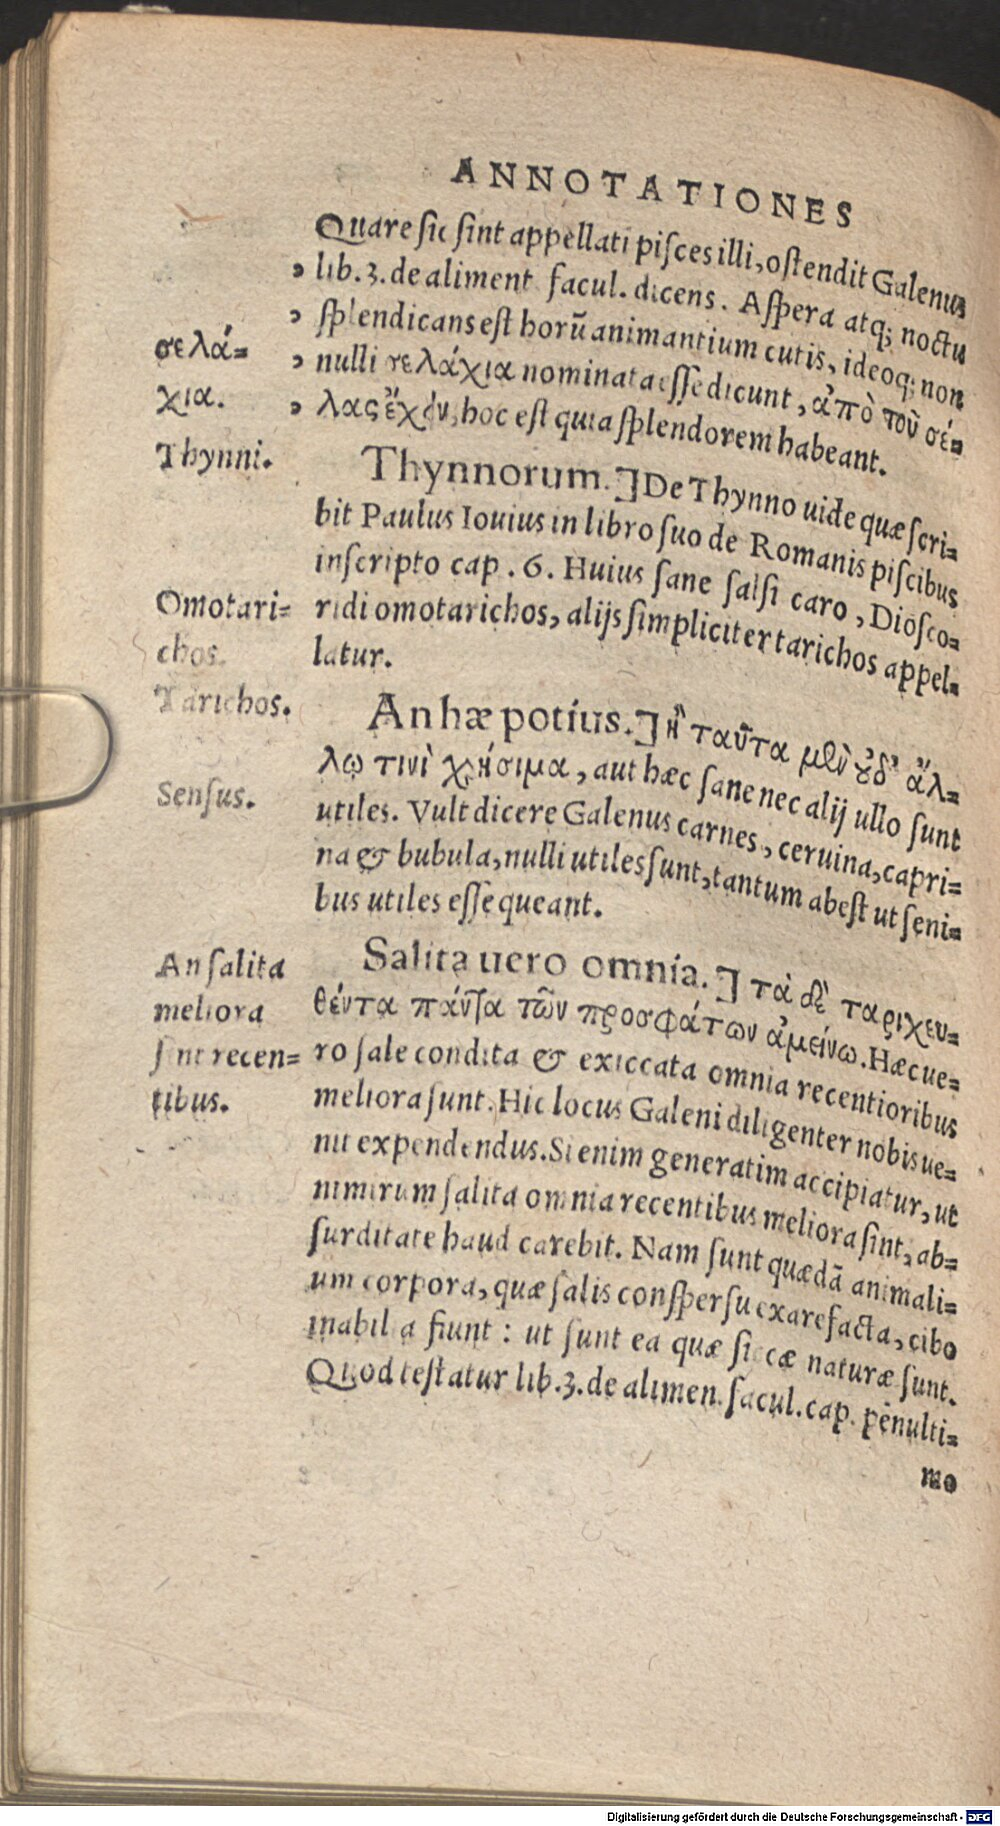 ANNOTATIONES
Quare sic sint appellati pisces illi, ostendit Galenus
, lib. 3. de aliment facul. dicens. Aspera atq; noctu
, splendicans est horũ animantium cutis, ideoq; non
σελά=
, nulli σελάχια nominata esse dicunt, ἀπὸ τοῦ σέ=
χια.
, λας ἔχειν, hoc est quia splendorem habeant.
Thynni.
Thynnorum.] De Thynno uide quæ scri=
bit Paulus Iouius in libro suo de Romanis piscibus
inscripto cap. 6. Huius sane salsi caro, Diosco=
Omotari=
ridi omotarichos, alijs simpliciter tarichos appel=
chos.
latur.
Tarichos.
An hæ potius.] ἢ ταῦτα μὲν οὐδ' ἄλ=
λῳ τινὶ χρήσιμα, aut hæc sane nec alij ullo sunt
Sensus.
utiles. Vult dicere Galenus carnes, ceruina, capri=
na & bubula, nulli utiles sunt, tantum abest ut seni=
bus utiles esse queant.
An salita
Salita uero omnia.] τὰ δὲ ταριχευ=
meliora
θέντα πάντα τῶν προσφάτων ἀμείνω. Hæc ue=
sint recen=
ro sale condita & exiccata omnia recentioribus
tibus.
meliora sunt. Hic locus Galeni diligenter nobis ue=
nit expendendus. Si enim generatim accipiatur, ut
nimirum salita omnia recentibus meliora sint, ab=
surditate haud carebit. Nam sunt quædã animali=
um corpora, quæ salis conspersu exarefacta, cibo
inabilia fiunt : ut sunt ea quæ siccæ naturæ sunt.
Quod testatur lib. 3. de alimen. facul. cap. penulti=
mo
Digitalisierung gefördert durch die Deutsche Forschungsgemeinschaft - DFG